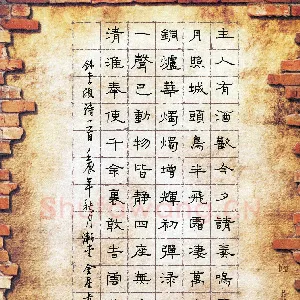 主人有酒歡今夕請奏鳴
月照城頭烏半飛霜淒萬
銅爐華燭燭增輝初彈淥
一聲已動物皆靜四座無
清淮奉使千余裏敢告雲
詩一首壬辰年秋月